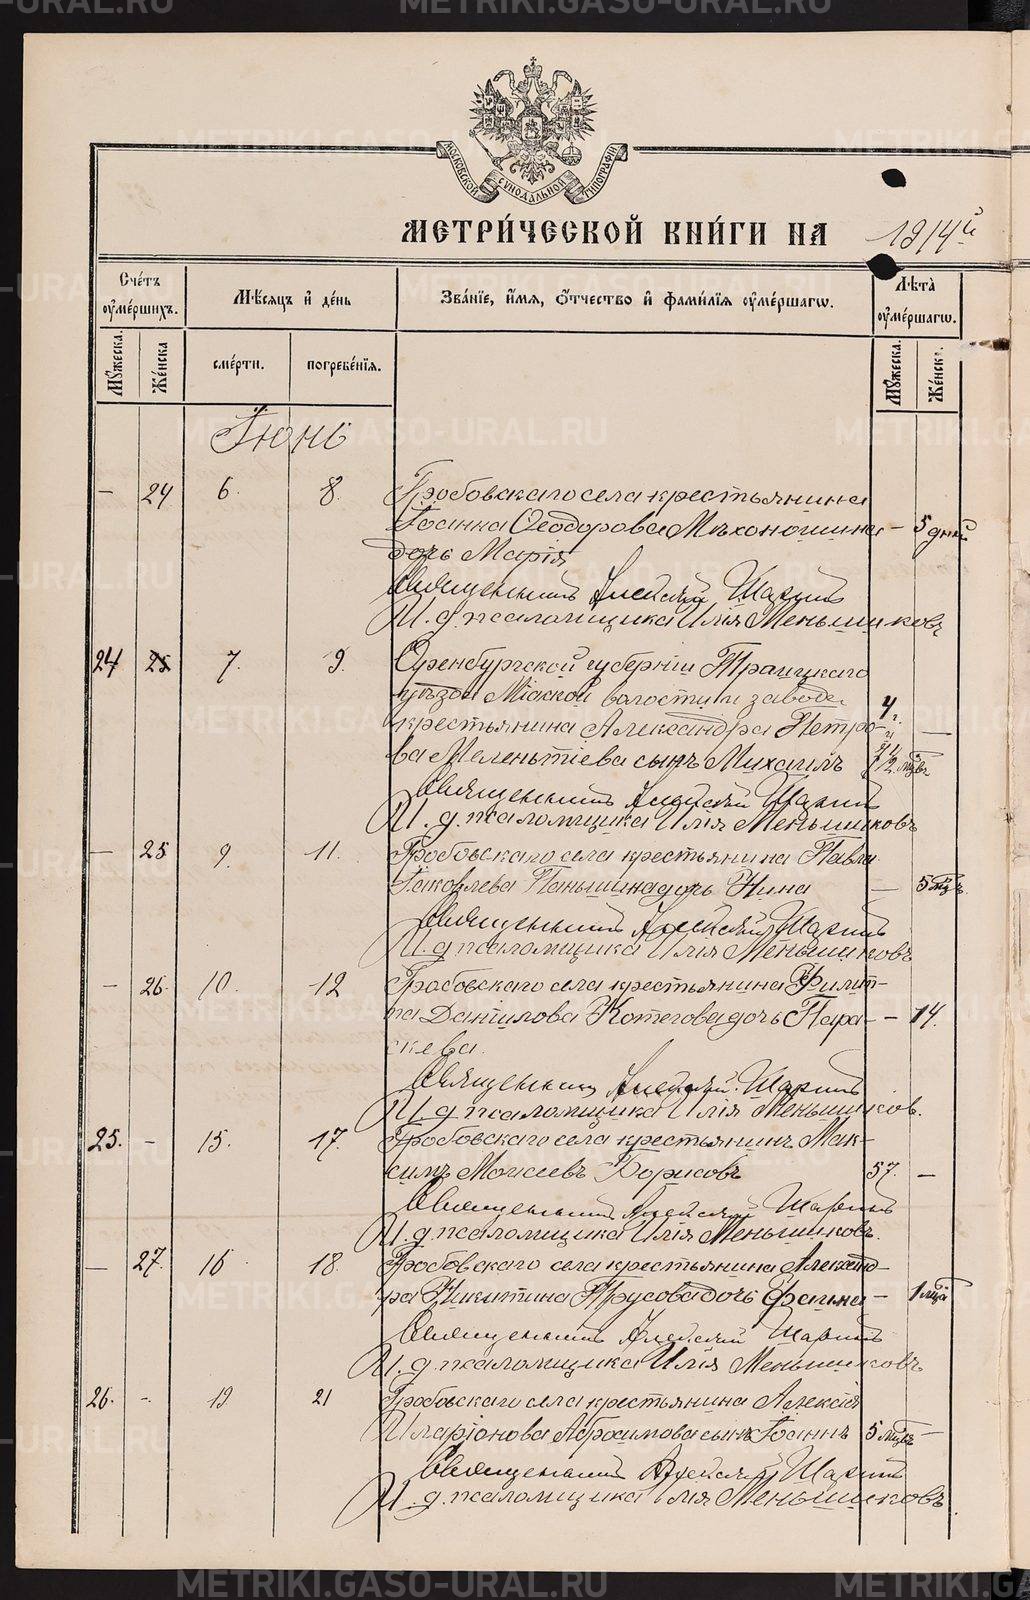 МОСКОВСКОЙ СѴНОДАЛЬНОЙ ТИПОГРАФІИ
МЕТРИ́ЧЕСКОЙ КНИ́ГИ НА 1914й
Сче́тъ ᲂу҆ме́ршихъ.
Мѣ́сяцъ и҆ де́нь
Зва́нїе, и҆́мѧ, ѻ҆́тчество и҆ фами́лїѧ ᲂу҆ме́ршагѡ.
Лѣ́та ᲂу҆ме́ршагѡ.
Мꙋ́жеска.
Же́нска
сме́рти.
погребе́нїѧ.
Мꙋ́жеска.
Же́нск.
Іюнь
— 24 6. 8. Гробовскаго села крестьянина
Іоанна Ѳеодорова Мѣхоношина — 5 дней
дочь Марія
Священникъ Алексій Шаринъ
И. д. псаломщика Илія Меньшиковъ
24 25 7. 9. Оренбургской губерніи Троицкаго
уѣзда Міасской волости и завода
крестьянина Александра Петро- 4 г. —
ва Мелентіева сынъ Михаилъ и 1/2 мѣс.
Священникъ Алексій Шаринъ
И. д. псаломщика Илія Меньшиковъ
— 25 9. 11. Гробовскаго села крестьянина Павла
Іаковлева Паньшина дочь Нина — 5 мѣс.
Священникъ Алексій Шаринъ
И. д. псаломщика Илія Меньшиковъ
— 26. 10. 12 Гробовскаго села крестьянина Филип-
па Даніилова Котегова дочь Пара- — 14.
скева.
Священникъ Алексій Шаринъ
И. д. псаломщика Илія Меньшиков.
25. — 15. 17. Гробовскаго села крестьянинъ Мак-
симъ Моисеевъ Борисовъ 57. —
Священникъ Алексій Шаринъ
И. д. псаломщика Илія Меньшиковъ.
— 27. 16 18. Гробовскаго села крестьянина Александ-
ра Никитина Трусова дочь Фаина — 1 мѣс.
Священникъ Алексій Шаринъ
И. д. псаломщика Илія Меньшиковъ
26. — 19 21 Гробовскаго села крестьянина Алексія
Иларіонова Абросимова сынъ Іоаннъ 5 мѣс. —
Священникъ Алексій Шаринъ
И. д. псаломщика Илія Меньшиковъ
METRIKI.GASO-URAL.RU